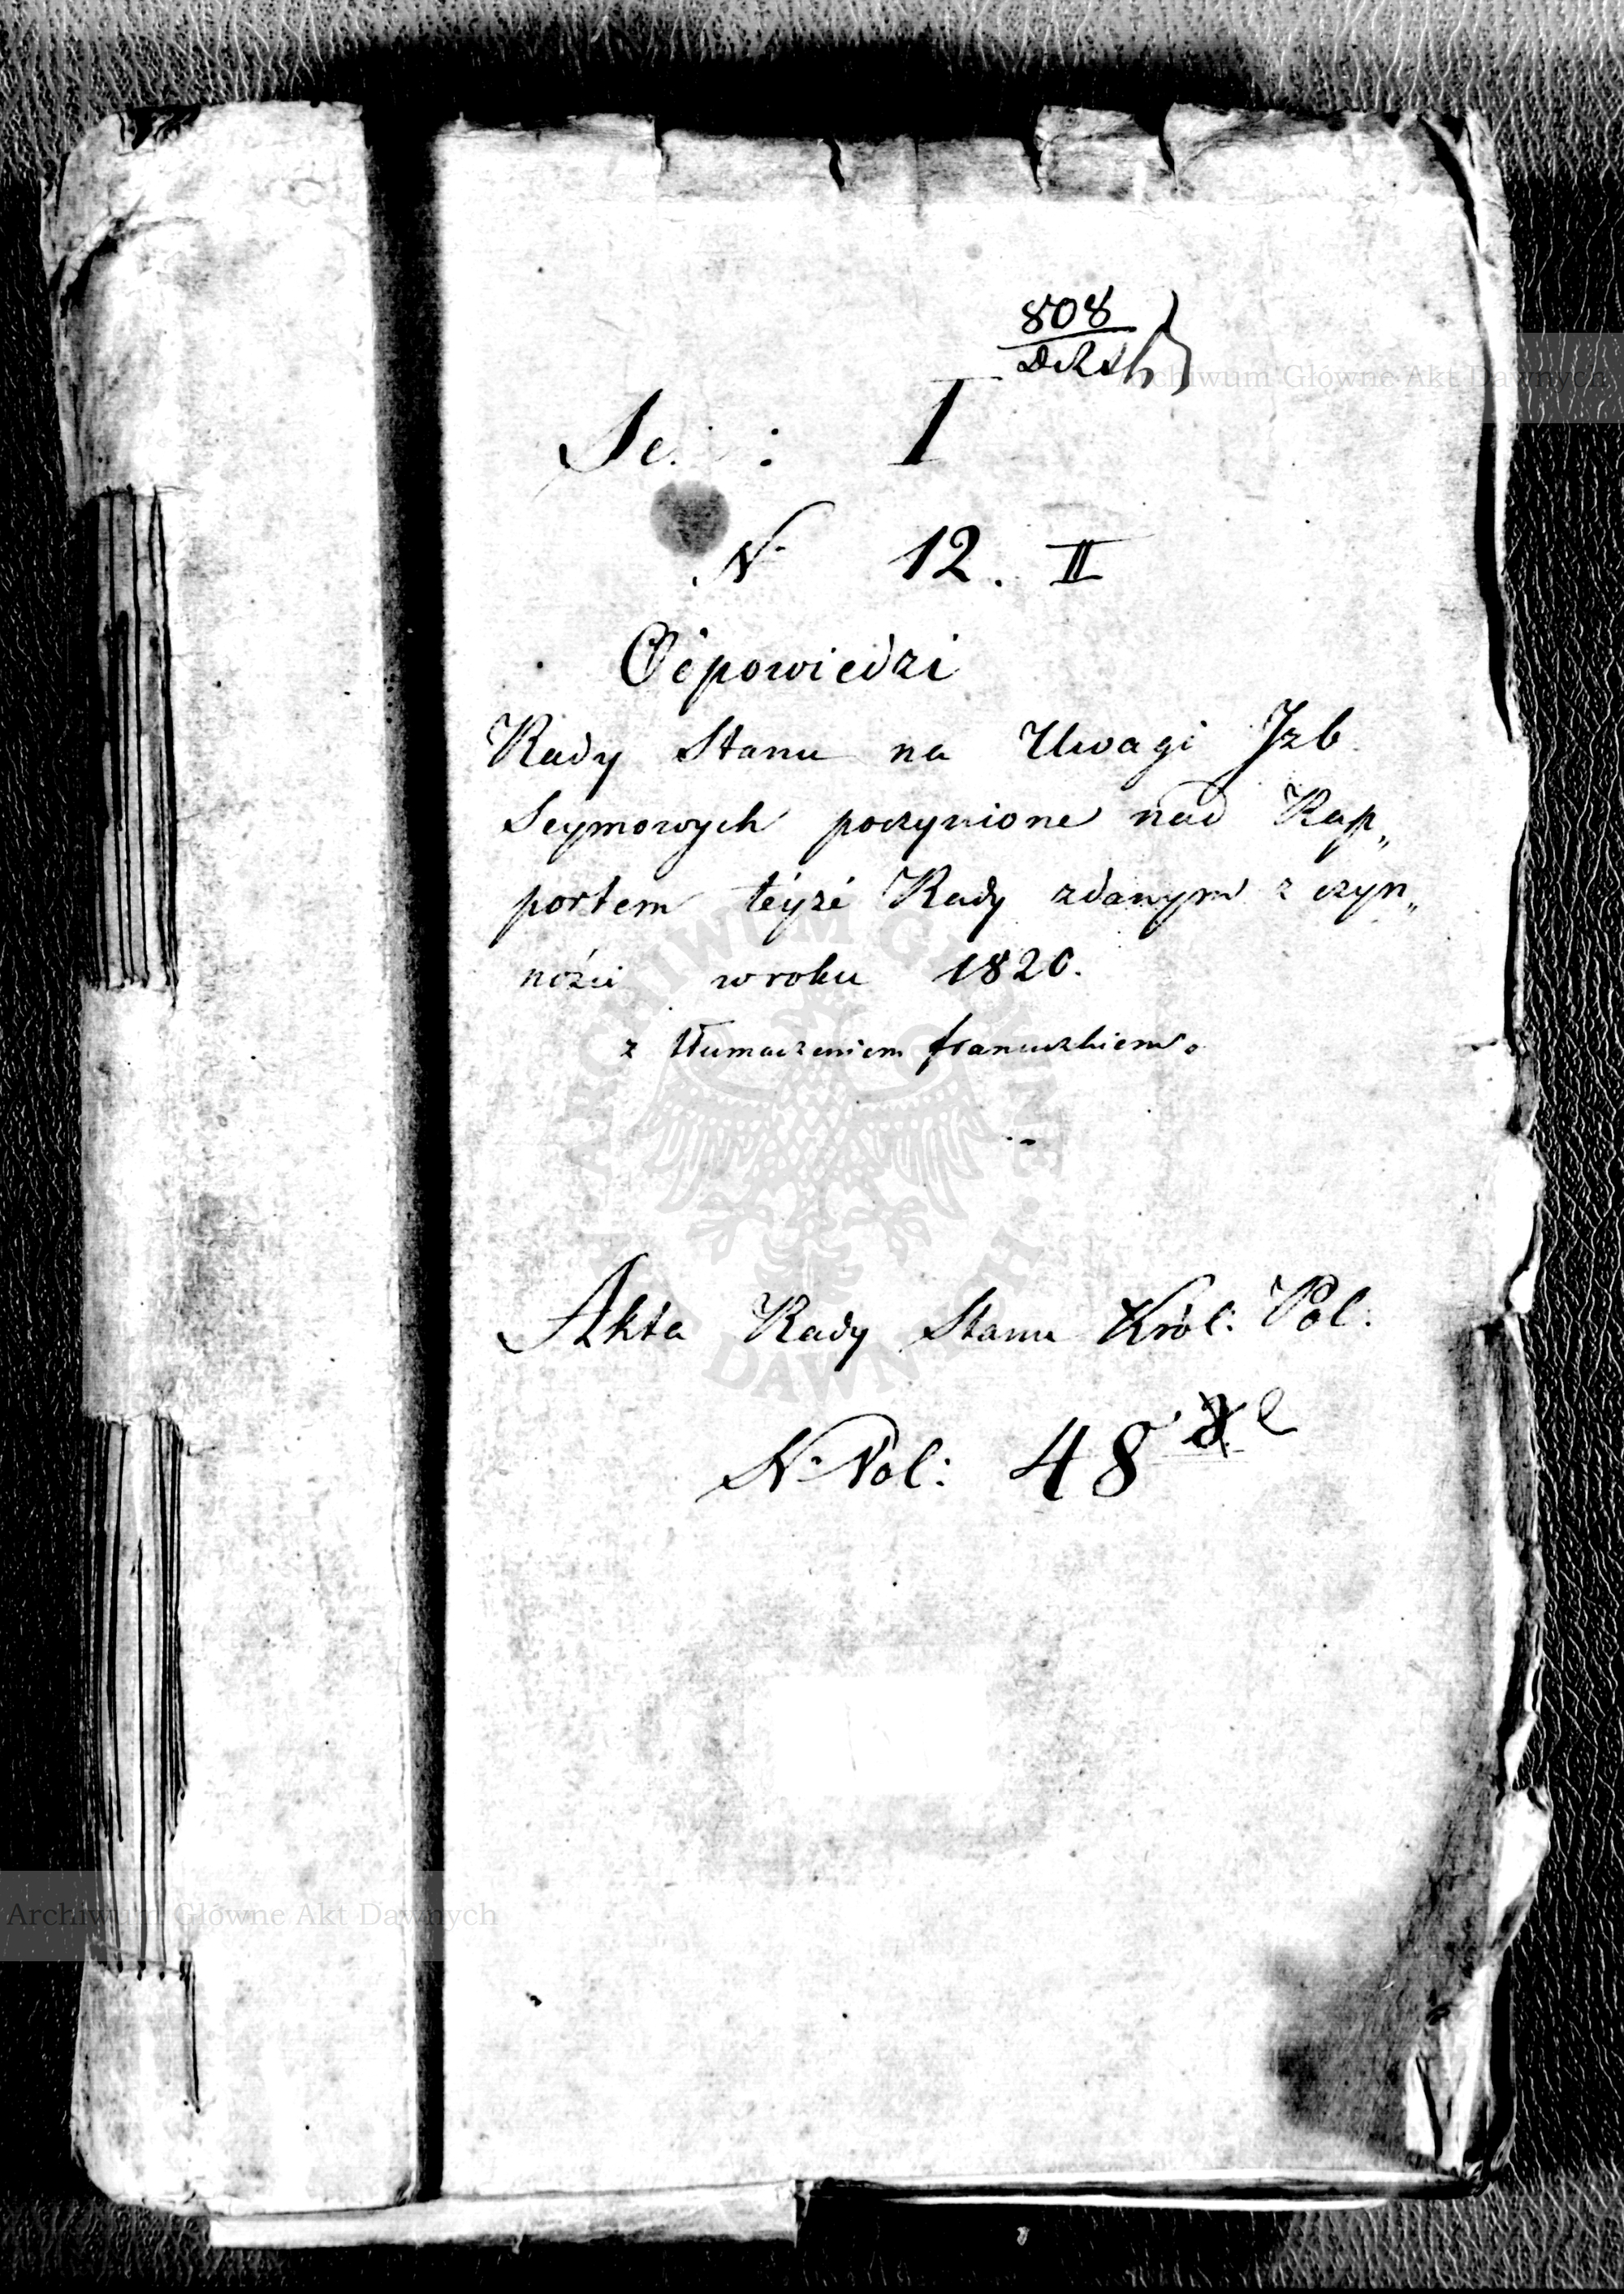 808
I
N. 12. II
Odpowiedzi
Rady Stanu na Uwagi Jzb
Seymowych poczynione nad Rap„
portem téyże Rady zdanym z czyn„
ności w roku 1820.
z tłumaczeniem francuzkiem.
Akta Rady Stanu Król: Pol:
N. Vol: 48 e
Archiwum Główne Akt Dawnych
ARCHIWUM GŁÓWNE AKT DAWNYCH
Archiwum Główne Akt Dawnych